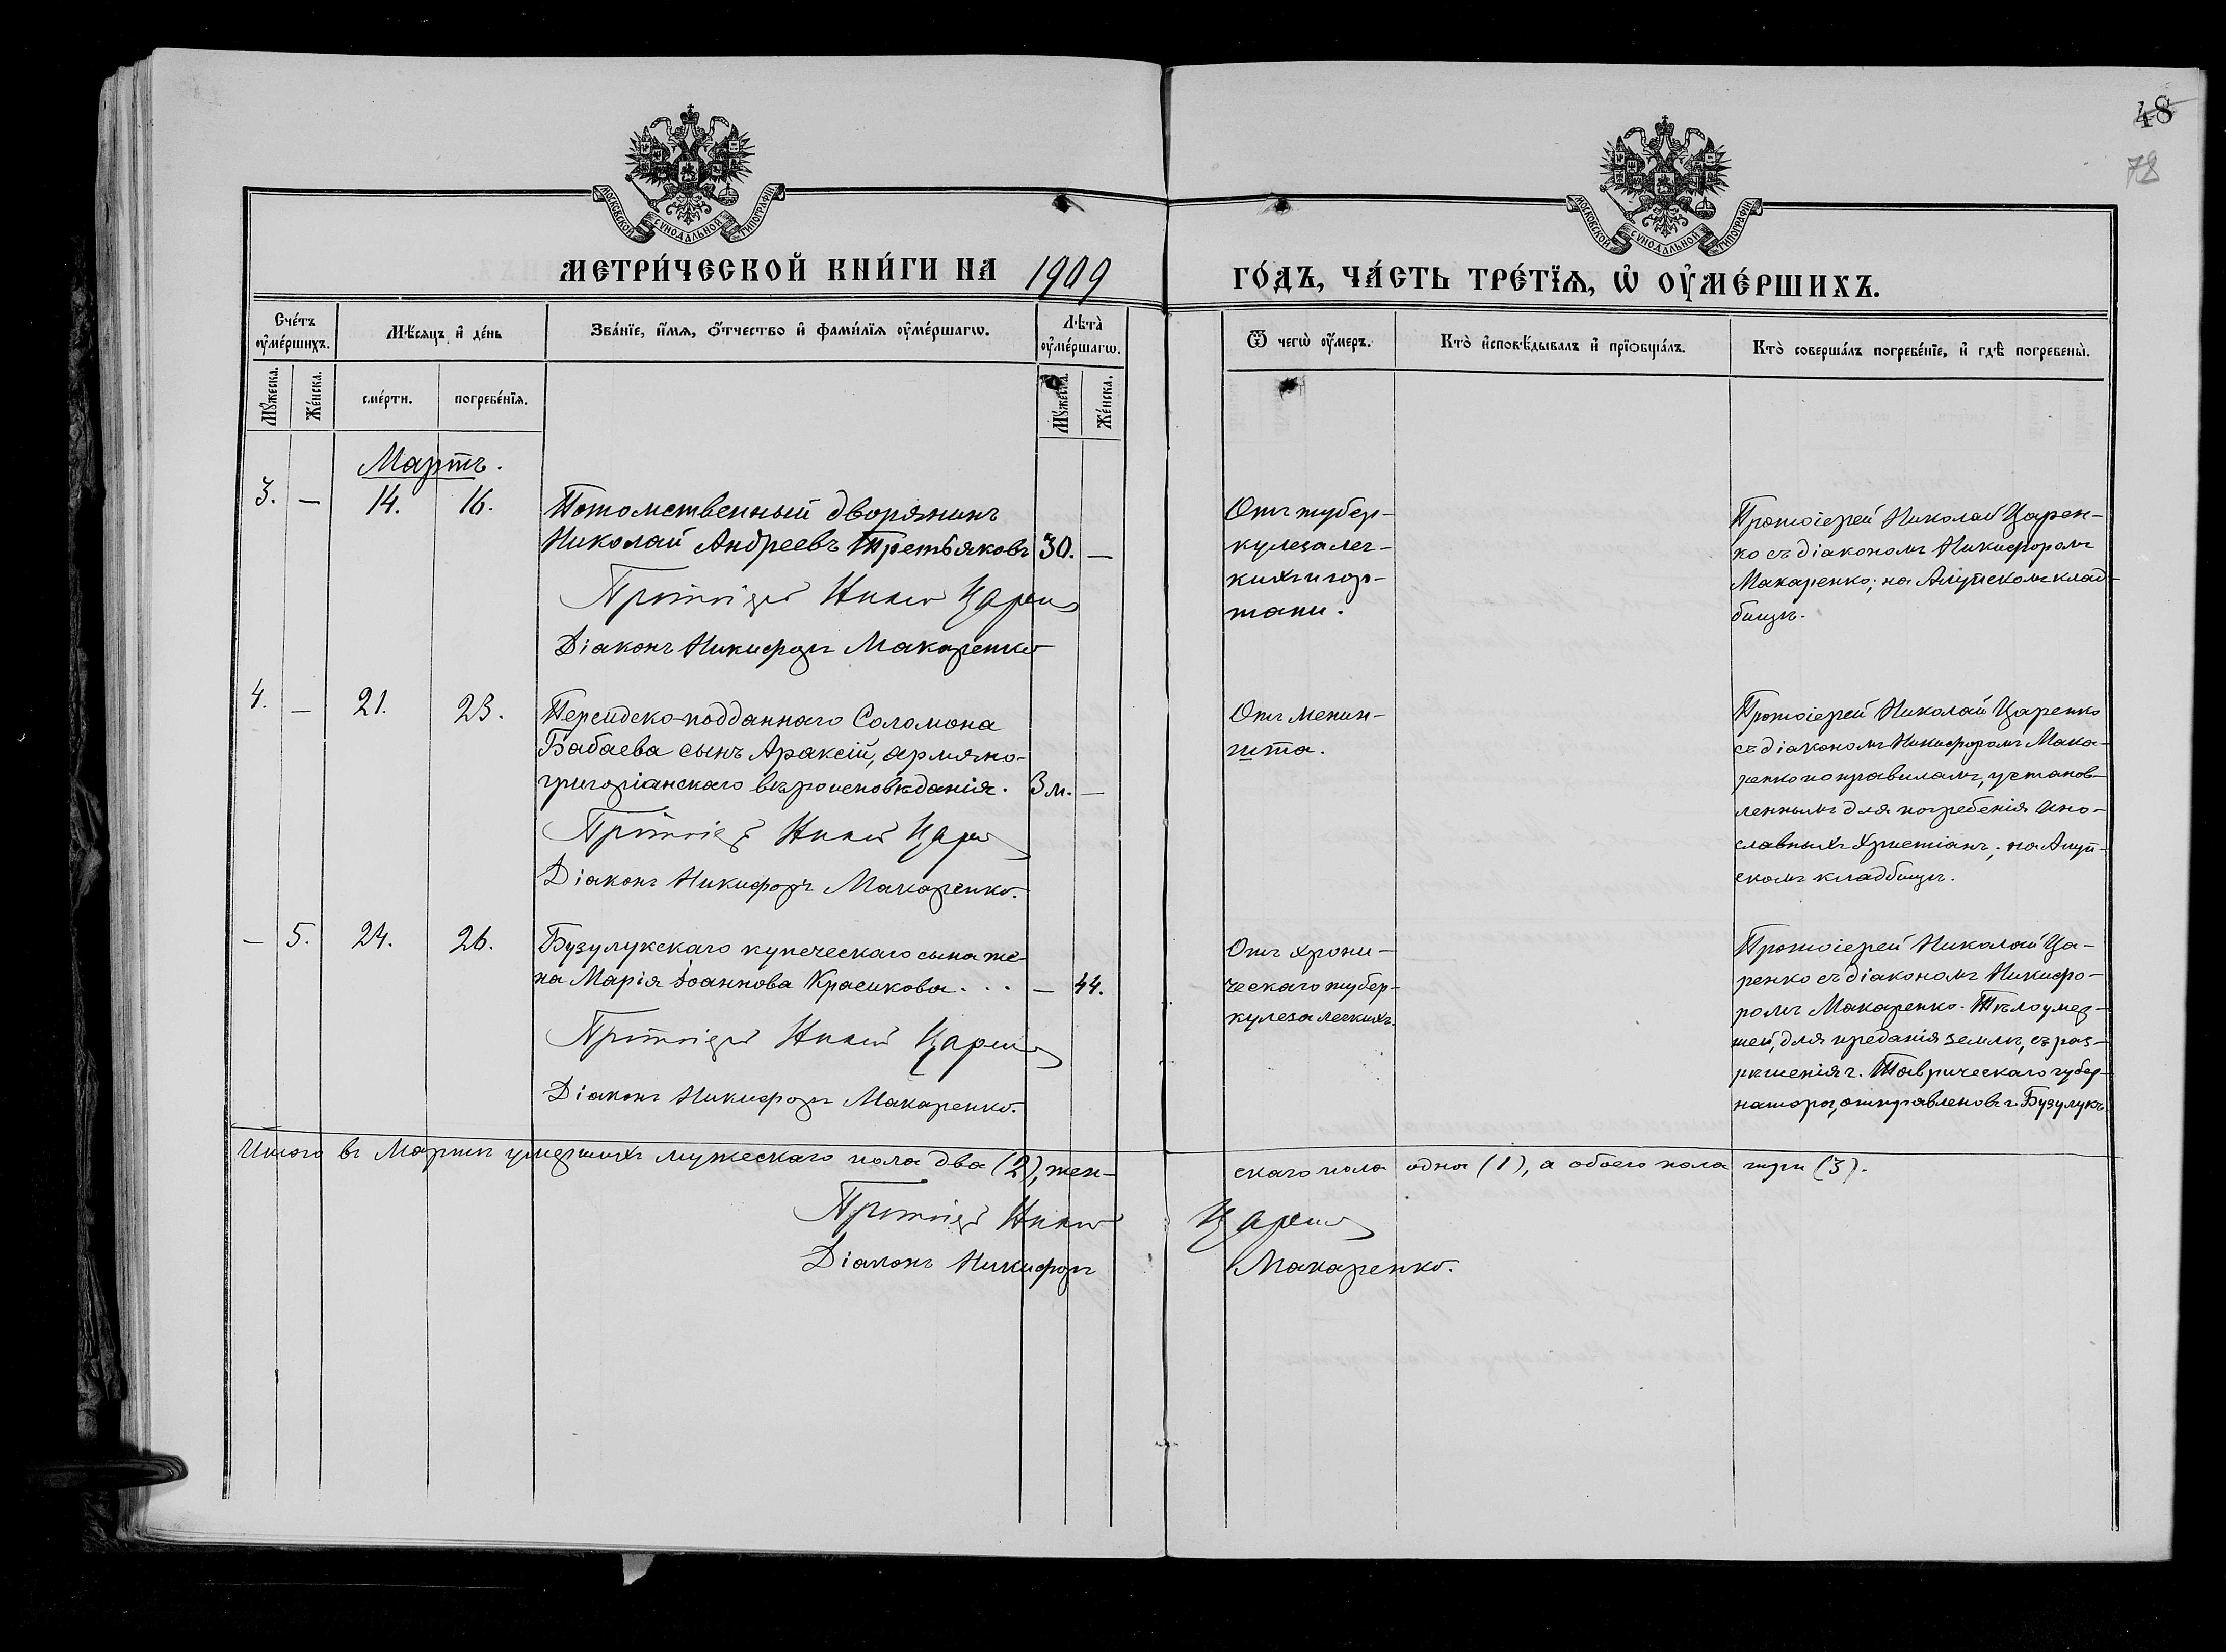 48
78
МОСКОВСКОЙ СѴНОДАЛЬНОЙ ТИПОГРАФІИ
МОСКОВСКОЙ СѴНОДАЛЬНОЙ ТИПОГРАФІИ
МЕТРИ́ЧЕСКОЙ КНИ́ГИ НА 1909
ГО́ДЪ, ЧА́СТЬ ТРЕ́ТЇѦ, Ѡ҆ ОУ҆МЕ́РШИХЪ.
Сче́тъ оу҆ме́ршихъ.
Мѣ́сяцъ и҆ де́нь
Зва́нїе, и҆́мѧ, ѻ҆́тчество и҆ фами́лїѧ оу҆ме́ршагѡ.
Лѣ́та̀ оу҆ме́ршагѡ.
Ѿ чегѡ̀ оу҆́меръ.
Кто̀ и҆сповѣ́дывалъ и҆ прїѡбща́лъ.
Кто̀ соверша́лъ погребе́нїе, и҆ гдѣ̀ погребены̀.
Мꙋ́жеска.
Же́нска.
сме́рти.
погребе́нїѧ.
Мꙋ́жеска.
Же́нска.
Мартъ.
3. — 14. 16.
Потомственный дворянинъ
Николай Андреевъ Третьяковъ 30. —
Протоіерей Никол Царен
Діаконъ Никифоръ Макаренко
Отъ тубер-
кулеза лег-
кихъ и гор-
тани.
Протоіерей Николай Царен-
ко съ діакономъ Никифоромъ
Макаренко; на Алупскомъ клад-
бищѣ.
4. — 21. 23.
Персидско-подданнаго Соломона
Бабаева сынъ Араксій, армяно-
григоріанскаго вѣроисповѣданія. 3 м. —
Протоіер Никол Царен
Діаконъ Никифоръ Макаренко.
Отъ менин-
гита.
Протоіерей Николай Царенко
съ діакономъ Никифоромъ Мака-
ренко по правиламъ, установ-
леннымъ для погребенія ино-
славныхъ христіанъ; на Алуп-
скомъ кладбищѣ.
— 5. 24. 26.
Бузулукскаго купеческаго сына же-
на Марія Іоаннова Красикова... — 44.
Протоіерей Никол Царен
Діаконъ Никифоръ Макаренко.
Отъ хрони-
ческаго тубер-
кулеза легкихъ.
Протоіерей Николай Ца-
ренко съ діакономъ Никифо-
ромъ Макаренко. Тѣло умер-
шей, для преданія землѣ, съ раз-
рѣшенія г. Таврическаго губер-
натора, отправлено въ г. Бузулукъ.
Итого въ Мартѣ умершихъ мужескаго пола два (2), жен-
скаго пола одна (1), а обоего пола три (3).
Протоіер Никол Царен
Діаконъ Никифоръ Макаренко.